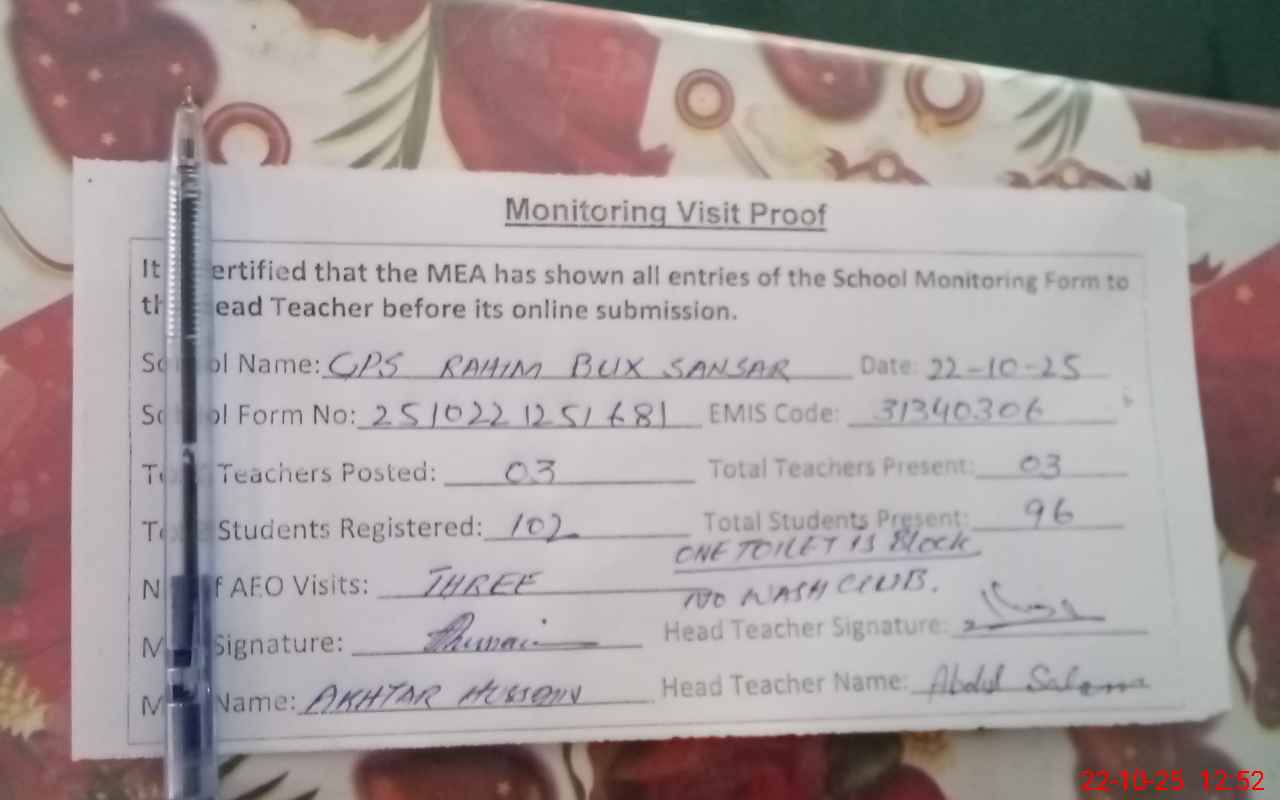 Monitoring Visit Proof
It ertified that the MEA has shown all entries of the School Monitoring Form to
th ead Teacher before its online submission.
Sc ol Name: GPS RAHIM BUX SANSAR Date: 22-10-25
Sc ol Form No: 251022 1251681 EMIS Code: 31340306
To Teachers Posted: 03 Total Teachers Present: 03
To Students Registered: 102 Total Students Present: 96
ONE TOILET IS Block
N f AEO Visits: THREE NO WASH CLUB.
M Signature: Head Teacher Signature:
M Name: AKHTAR HUSSAIN Head Teacher Name: Abdul Salam
22-10-25 12:52